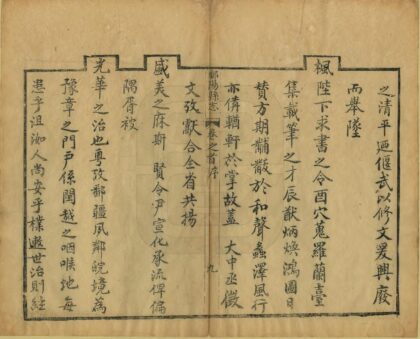 之清平迺偃武以修文爰興廢
而舉墜
楓陛下求書之令酉穴蒐羅蘭臺
集載筆之才辰猷炳煥鴻圖日
贊方期黼黻於和聲蠡澤風行
亦備輶軒於掌故蓋 大中丞徵
鄱陽縣志 卷之首序 九
文攷獻合全省共揚
盛美之庥斯 賢令尹宣化承流俾偏
隅胥被
光華之治也粵攷鄱疆夙鄰皖境為
豫章之門戶係閩越之咽喉地每
患乎沮洳人尚安乎樸遬世治則絃